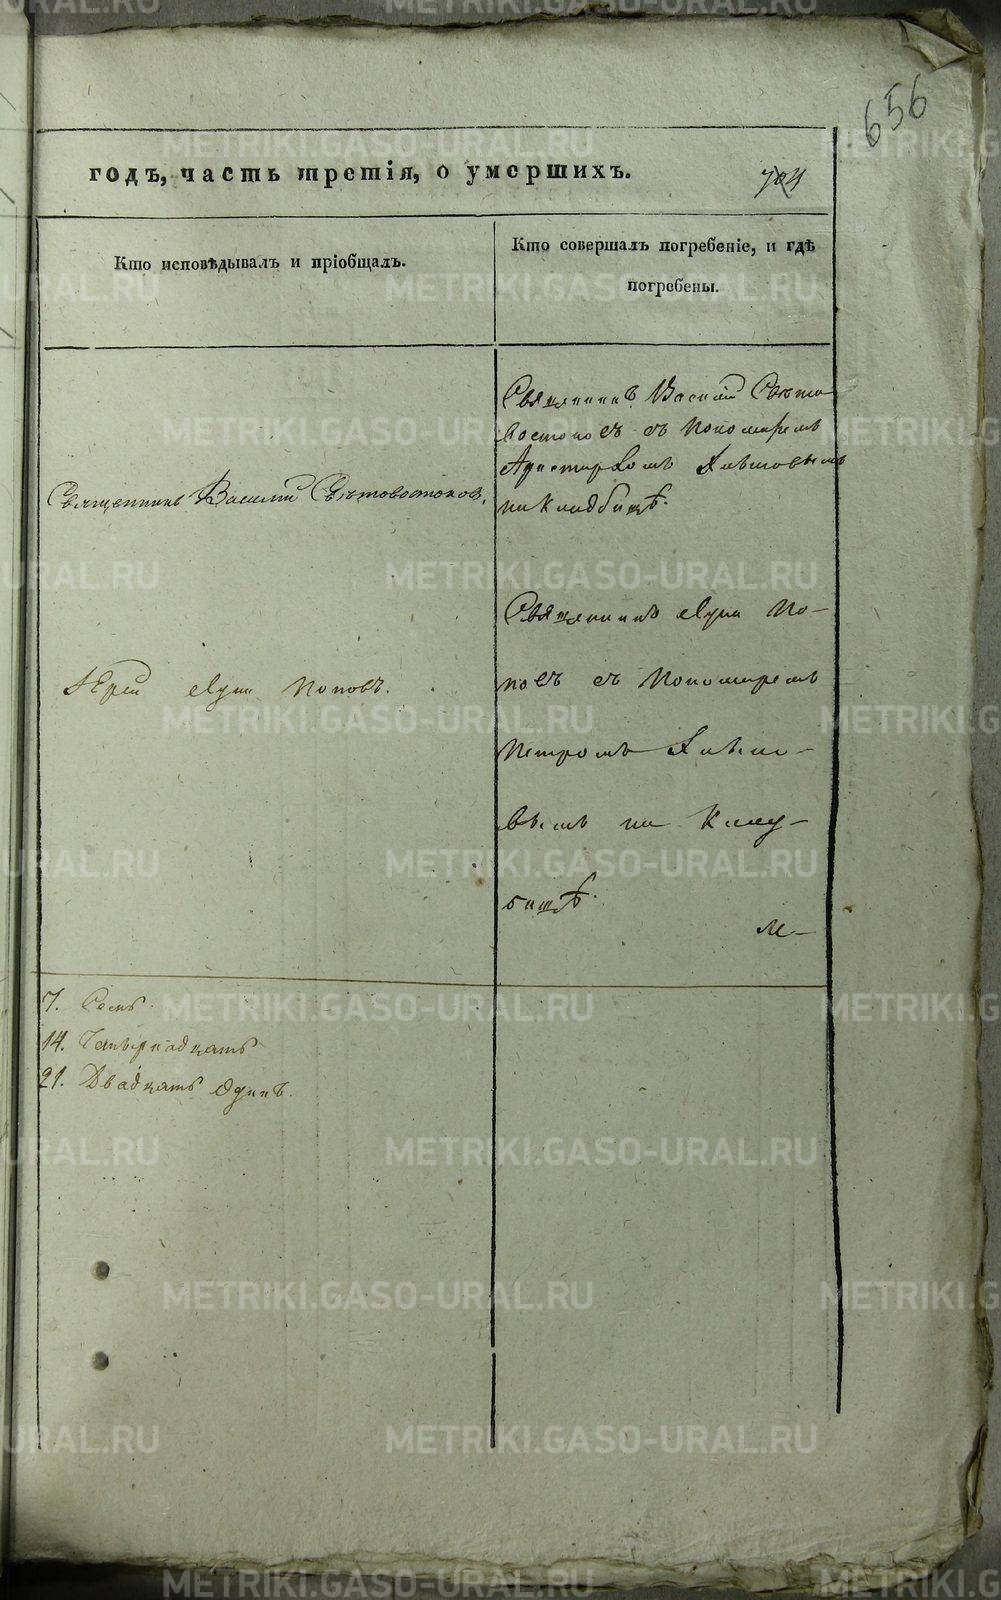 656
годъ, часть третія, о умершихъ.
704
Кто исповѣдывалъ и пріобщалъ.
Кто совершалъ погребеніе, и гдѣ
погребены.
Священникъ Василій Свѣтовостоковъ.
Священникъ Василій Свѣто
востоковъ съ Пономаремъ
Аристархомъ
на кладбищѣ.
Іерей Лука Поповъ.
Священникъ Лука По-
повъ съ Пономаремъ
Петромъ
вымъ на Клад-
бищѣ.
7. Семь
14. Четырнадцать
21. Двадцать Одинъ.
METRIKI.GASO-URAL.RU